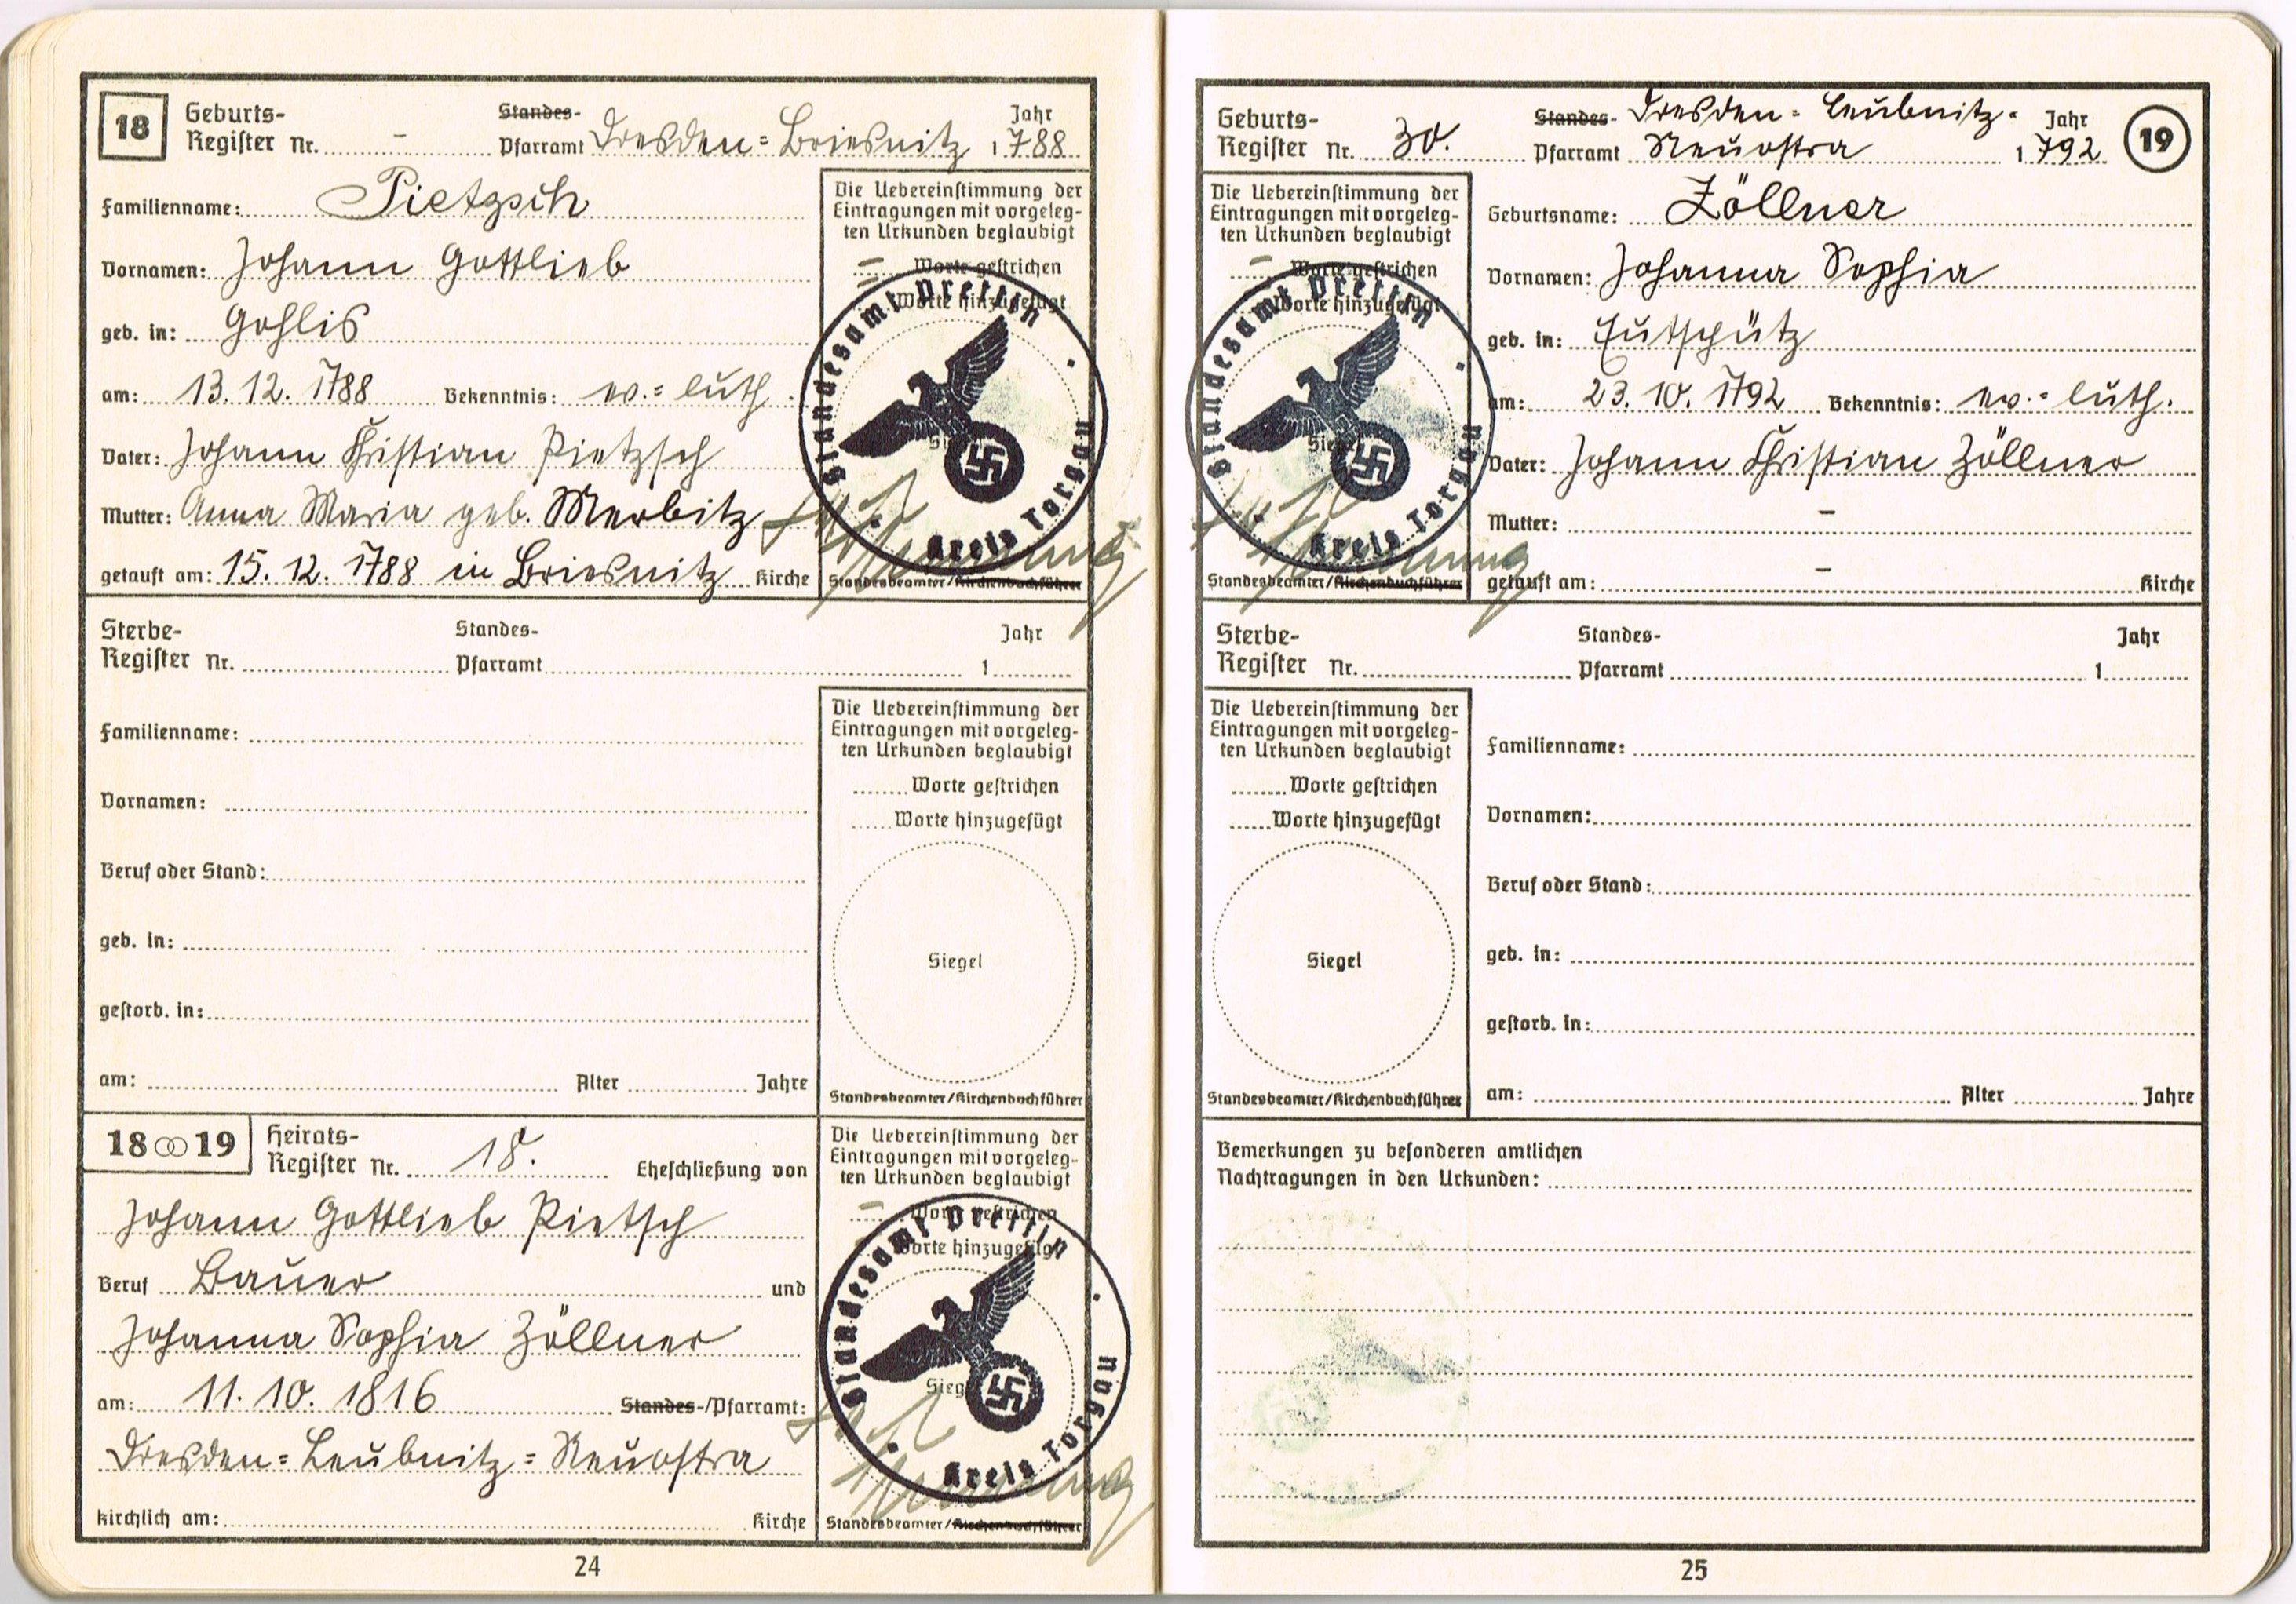 18
Geburts- Standes- Jahr
Register Nr. - Pfarramt Dresden=Briesnitz 1788
Familienname: Pietzsch
Vornamen: Johann Gottlieb
geb. in: Gohlis
am: 13.12.1788 Bekenntnis: ev.=luth.
Vater: Johann Christian Pietzsch
Mutter: Anna Maria geb. Merbitz
getauft am: 15.12.1788 in Briesnitz Kirche
Die Uebereinstimmung der
Eintragungen mit vorgeleg-
ten Urkunden beglaubigt
= Worte gestrichen
Worte hinzugefügt
Standesamt Prettin
Kreis Torgau
Standesbeamter/Kirchenbuchführer
Sterbe- Standes- Jahr
Register Nr. Pfarramt 1
Familienname:
Vornamen:
Beruf oder Stand:
geb. in:
gestorb. in:
am: Alter Jahre
Die Uebereinstimmung der
Eintragungen mit vorgeleg-
ten Urkunden beglaubigt
Worte gestrichen
Worte hinzugefügt
Siegel
Standesbeamter/Kirchenbuchführer
18 ⚭ 19
Heirats-
Register Nr. 18. Eheschließung von
Johann Gottlieb Pietsch
Beruf Bauer und
Johanna Sophia Zöllner
am: 11.10.1816 Standes-/Pfarramt:
Dresden=Leubnitz=Neuostra
kirchlich am: Kirche
Die Uebereinstimmung der
Eintragungen mit vorgeleg-
ten Urkunden beglaubigt
Worte gestrichen
Worte hinzugefügt
Siegel
Standesamt Prettin
Kreis Torgau
Standesbeamter/Kirchenbuchführer
24
Geburts- Standes- Dresden=Leubnitz- Jahr
Register Nr. 30. Pfarramt Neuostra 1792
19
Die Uebereinstimmung der
Eintragungen mit vorgeleg-
ten Urkunden beglaubigt
Worte gestrichen
Worte hinzugefügt
Siegel
Standesamt Prettin
Kreis Torgau
Standesbeamter/Kirchenbuchführer
Geburtsname: Zöllner
Vornamen: Johanna Sophia
geb. in: Eutschütz
am: 23.10.1792 Bekenntnis: ev.=luth.
Vater: Johann Christian Zöllner
Mutter: -
getauft am: - Kirche
Sterbe- Standes- Jahr
Register Nr. Pfarramt 1
Die Uebereinstimmung der
Eintragungen mit vorgeleg-
ten Urkunden beglaubigt
Worte gestrichen
Worte hinzugefügt
Siegel
Standesbeamter/Kirchenbuchführer
Familienname:
Vornamen:
Beruf oder Stand:
geb. in:
gestorb. in:
am: Alter Jahre
Bemerkungen zu besonderen amtlichen
Nachtragungen in den Urkunden:
25